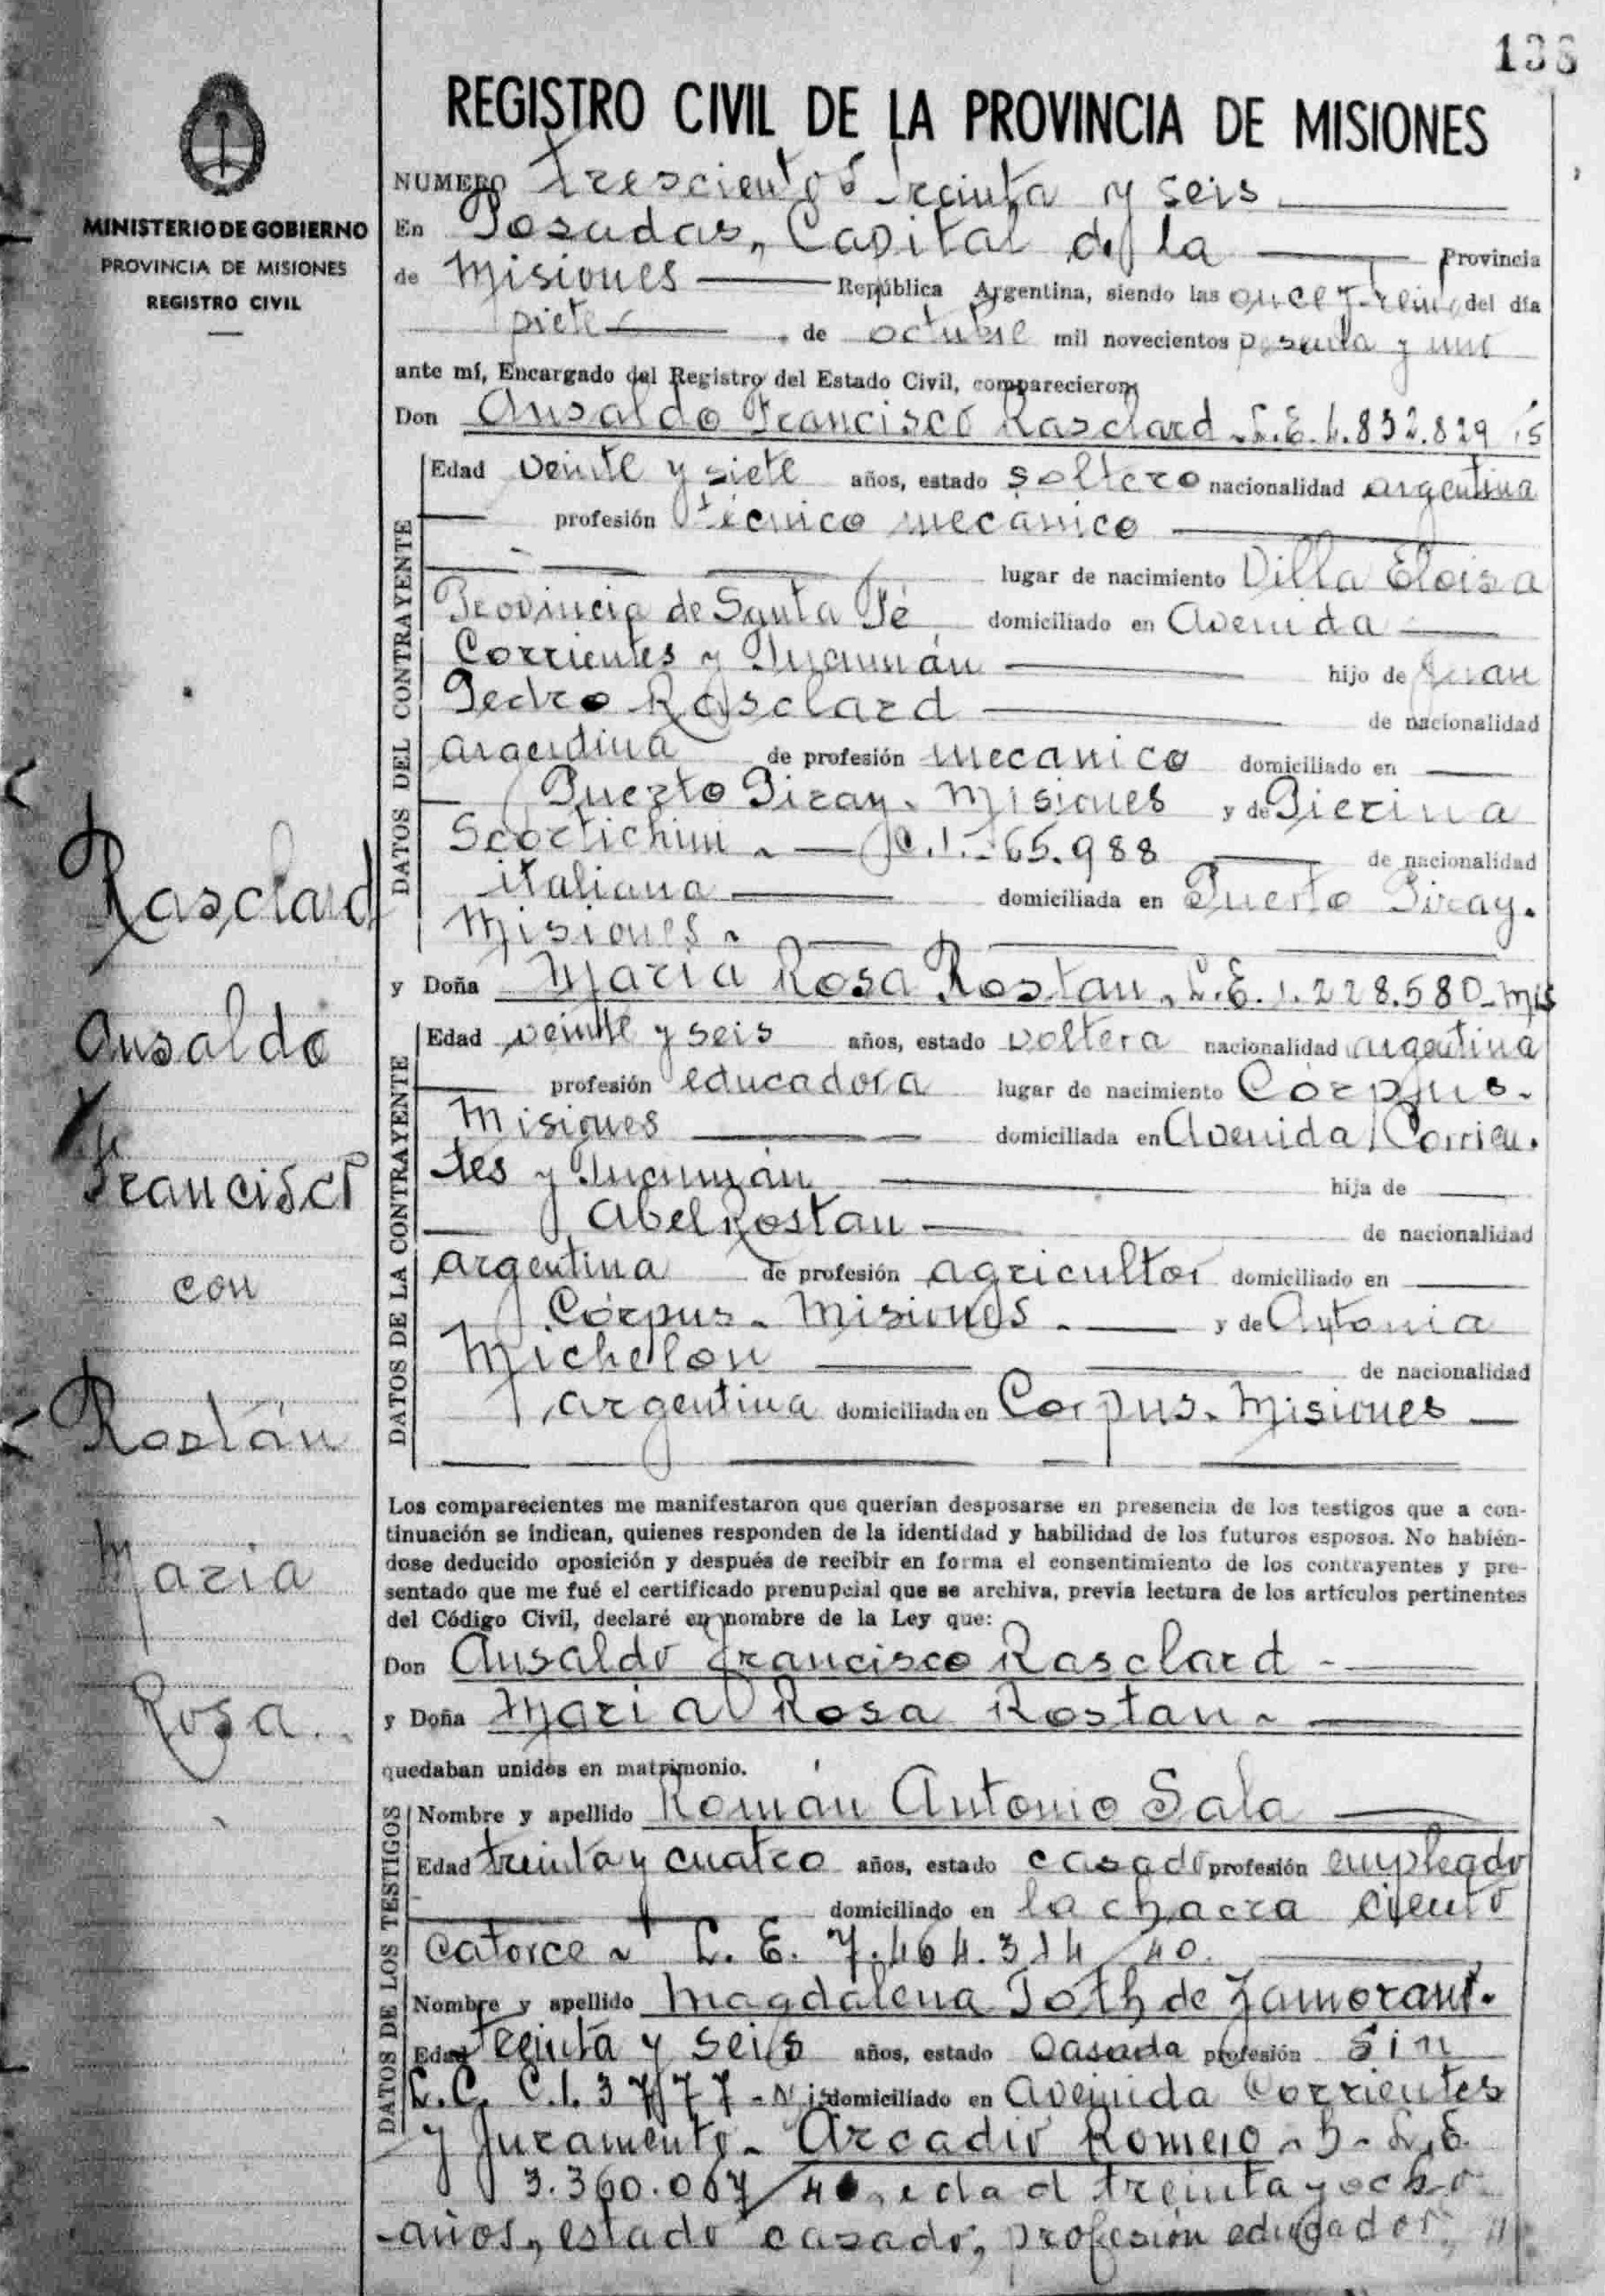 138
REGISTRO CIVIL DE LA PROVINCIA DE MISIONES
MINISTERIO DE GOBIERNO
PROVINCIA DE MISIONES
REGISTRO CIVIL
NUMERO trescientos treinta y seis
En Posadas, Capital de la Provincia
de Misiones República Argentina, siendo las once y treinta del día
siete de octubre mil novecientos sesenta y uno
ante mí, Encargado del Registro del Estado Civil, comparecieron:
Don Ansaldo Francisco Rasclard - L.E. 4.832.829
Edad veinte y siete años, estado soltero nacionalidad argentina
profesión técnico mecánico
lugar de nacimiento Villa Eloisa
Provincia de Santa Fé domiciliado en Avenida
Corrientes y Tucumán hijo de Juan
Pedro Rasclard de nacionalidad
argentina de profesión mecanico domiciliado en
Puerto Piray - Misiones y de Pierina
Scortichini - C.I. - 65.988 de nacionalidad
italiana domiciliada en Puerto Piray.
Misiones -
DATOS DEL CONTRAYENTE
y Doña María Rosa Rostan, L.E. 1.228.580 - Mis
Edad veinte y seis años, estado soltera nacionalidad argentina
profesión educadora lugar de nacimiento Córpus -
Misiones domiciliada en Avenida Corrien-
tes y Tucumán hija de
Abel Rostan de nacionalidad
argentina de profesión agricultor domiciliado en
Córpus - Misiones - y de Antonia
Michelon de nacionalidad
argentina domiciliada en Corpus - Misiones
DATOS DE LA CONTRAYENTE
Los comparecientes me manifestaron que querían desposarse en presencia de los testigos que a con-
tinuación se indican, quienes responden de la identidad y habilidad de los futuros esposos. No habién-
dose deducido oposición y después de recibir en forma el consentimiento de los contrayentes y pre-
sentado que me fué el certificado prenupcial que se archiva, previa lectura de los artículos pertinentes
del Código Civil, declaré en nombre de la Ley que:
Don Ansaldo Francisco Rasclard -
y Doña Maria Rosa Rostan -
quedaban unidos en matrimonio.
Nombre y apellido Román Antonio Sala
Edad treinta y cuatro años, estado casado profesión empleado
domiciliado en la chacra ciento
catorce - L.E. 7.464.314/40.
Nombre y apellido Magdalena Toth de Zamorano.
Edad treinta y seis años, estado casada profesión sin
L.C. C.I. 37177 - domiciliado en Avenida Corrientes
y Juramento - Arcadio Romero - L.E.
3.360.067/40, edad treinta y ocho
años, estado casado, profesión educador,
DATOS DE LOS TESTIGOS
Rasclard
Ansaldo
Francisco
con
Rostán
Maria
Rosa.